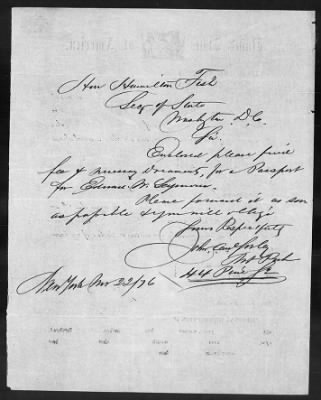 Hon Hamilton Fish
Secy of State
Washgtn D.C.
Sir.
Enclosed please find
fee & necessy Documts, for a Passport
for Edward W. Seymour.
Please forward it as soon
as possible & you will oblige
Yours Respectfully
John
44 Pine St
New York Nov 22/76